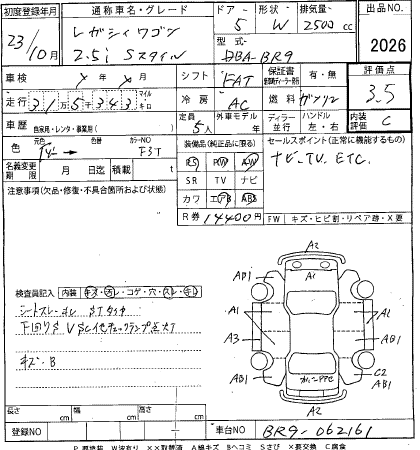 初度登録年月 通称車名・グレード ドア 形状 排気量 出品NO.
23/10月 レガシィワゴン 5 W 2500cc
2.5i Sスタイル 型式 DBA-BR9 2026
車検 年 月 シフト FAT 保証書 有・無 評価点
走行 31万5千343 マイル キロ 冷房 AC 燃料 ガソリン 3.5
車歴 自家用・レンタ・事業用( ) 定員 5人 外車モデル ディーラー 並行 ハンドル 左・右 内装評価 C
色 色替 カラーNO F3T 装備品(純正品に限る) セールスポイント(正常に機能するもの)
PS PW AW ナビ.TV.ETC.
名義変更期限 月 日 積載 t SR TV ナビ
注意事項(欠品・修復・不具合箇所および状態) カワ エアB ABS
R券 14400円 FW キズ・ヒビ割・リペア跡・X要
A2
AB1 A1 AB1
検査員記入 内装 キズ・汚レ・コゲ・穴・スレ・
シートスレ
A1 A1
下回りS A3
キズ・B
AB1 C2 AB1
A2
長さ cm 幅 cm 高さ cm
登録NO 車台NO BR9-062161
P 要塗装 W波有り XX取替済 A線キズ Bヘコミ Sさび X要交換 C腐食